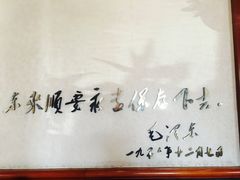 东来顺要永远保存下去。
毛泽东
一九五六年十二月七日